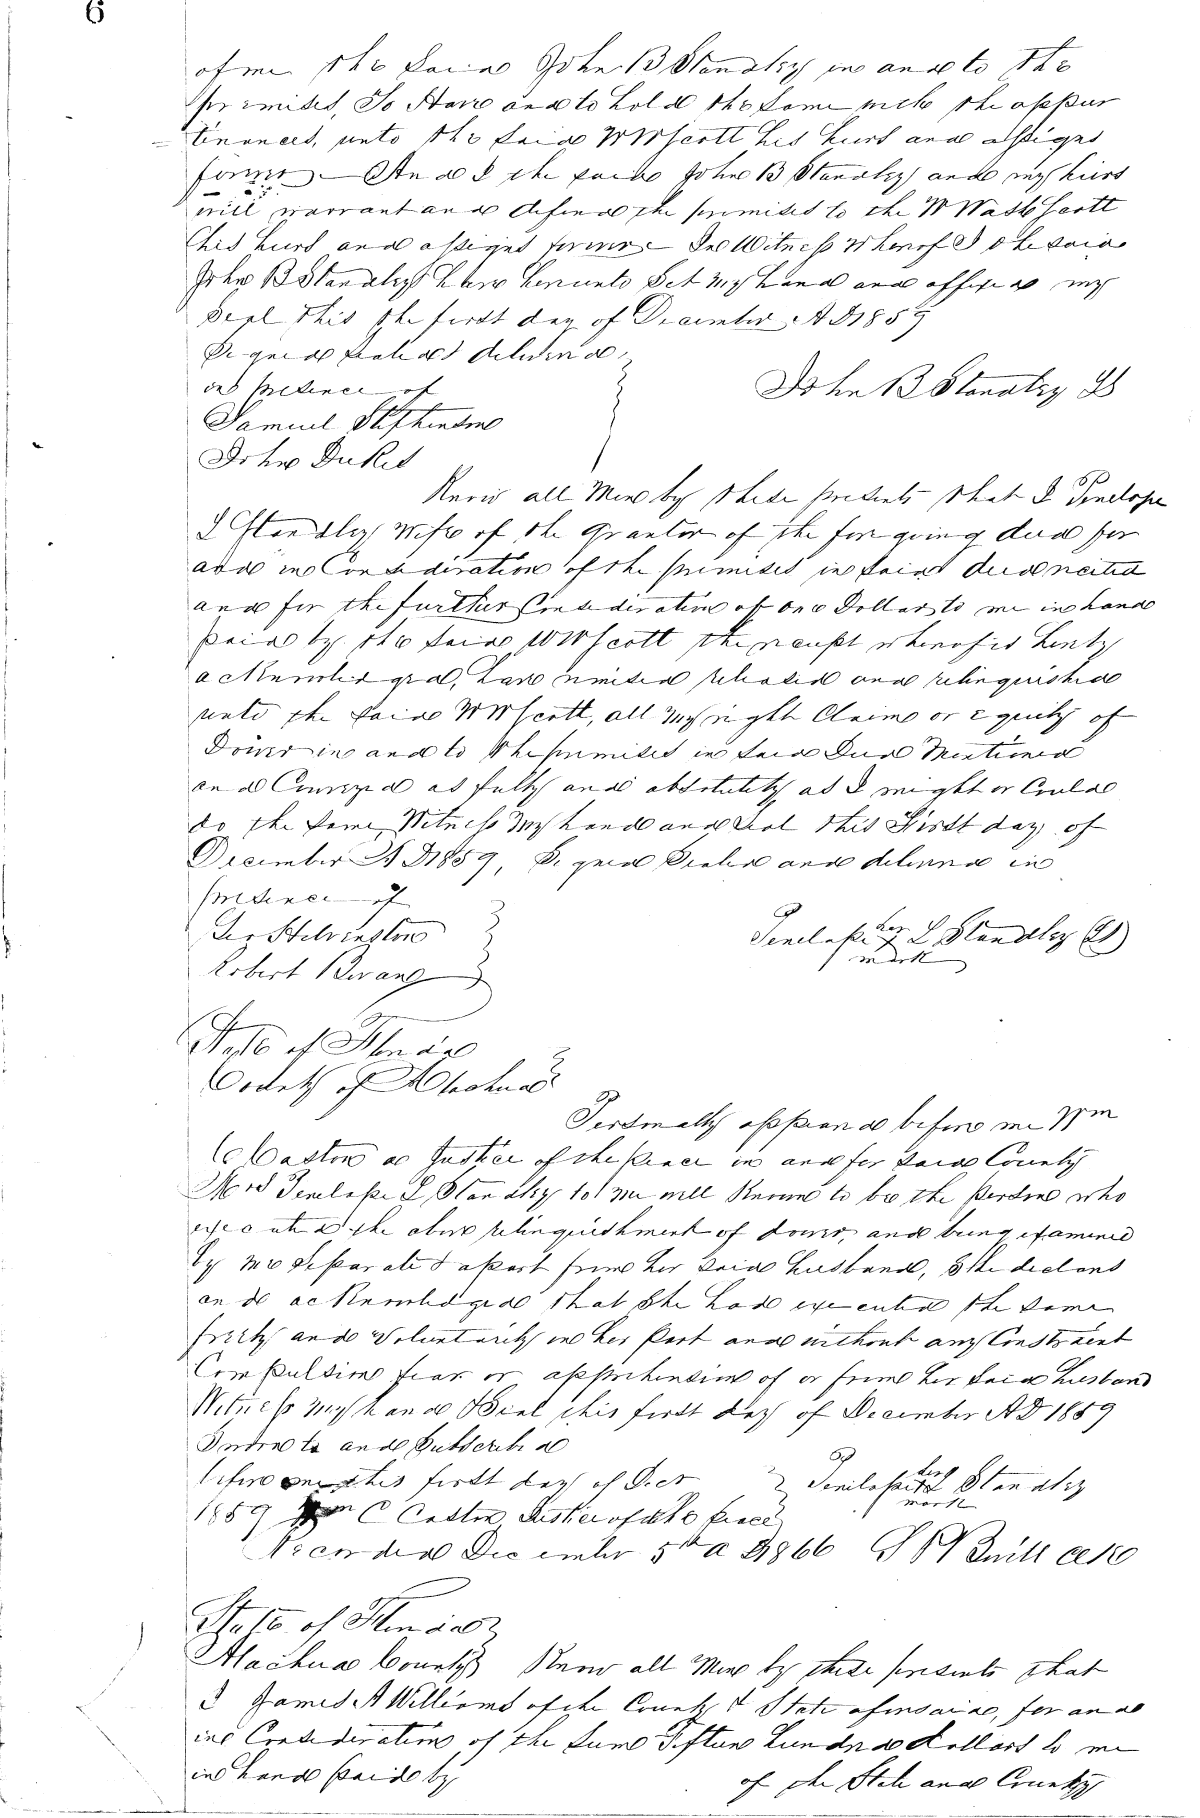 6
of me the Said John B Standley in and to the
premises, To Have and to hold the Same with the appur
tenances, unto the Said W W Scott his heirs and assigns
forever. And I the said John B Standley and my heirs
will warrant and defend the premises to the W Wash Scott
his heirs and assigns forever In Witness Whereof I the said
John B Standley have hereunto Set my hand and affixed my
Seal this the first day of December A D 1859
Signed Sealed delivered
in presence of
John B Standley LS
Samuel Stephenson
John Dukes
Know all Men by these presents that I Penelope
L Standley Wife of the Grantor of the foregoing deed for
and in Consideration of the premises in said deed recited
and for the further Consideration of one Dollar to me in hand
paid by the said W W Scott the receipt whereof is hereby
acknowledged, have remised released and relinquished
unto the said W W Scott, all my right Claim or equity of
Dower in and to the premises in said Deed Mentioned
and Conveyed as fully and absolutely as I might or Could
do the same, Witness my hand and seal this First day of
December A D 1859, Signed Sealed and delivered in
presence of
Geo Helvenston
Penelope her X mark L Standley LS
Robert Bevans
State of Florida
County of Alachua
Personally appeared before me Wm
C Caston a Justice of the Peace in and for said County
Mrs Penelope L Standley to me well Known to be the person who
executed the above relinquishment of dower, and being examined
by me separate & apart from her said husband, She declares
and acknowledged that She had executed the same
freely and Voluntarily on her part and without any Constraint
Compulsion fear or apprehension of or from her said husband
Witness my hand & Seal this first day of December AD 1859
Sworn to and Subscribed
before me this first day of Decr
Penelope her X mark L Standley
1859 Wm C Caston Justice of the Peace
Recorded December 5th A D 1866 Clk
State of Florida
Alachua County Know all Men by these presents that
I James A Williams of the County & State aforesaid, for and
in Consideration of the sum Fifteen hundred dollars to me
in hand paid by of the State and County